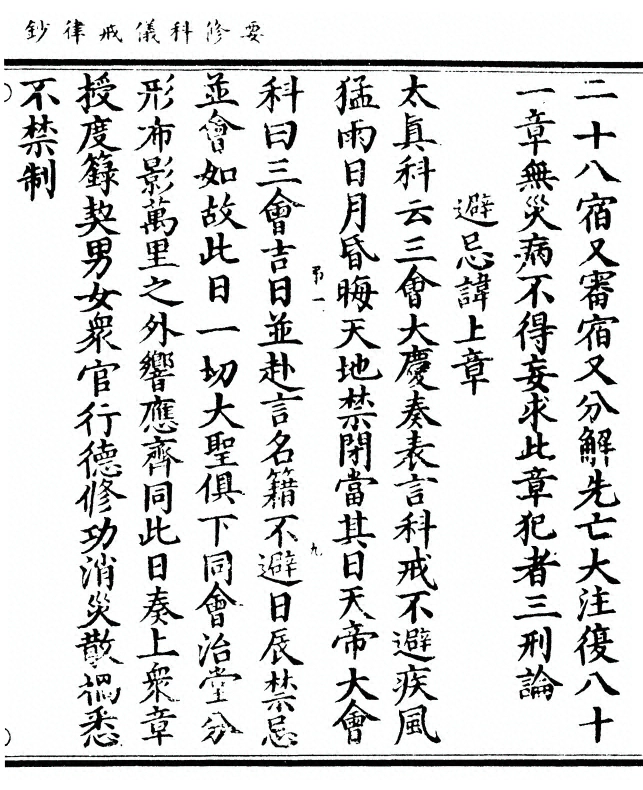 要修科儀戒律鈔
二十八宿又審宿又分解先亡大注復八十
一章無災病不得妄求此章犯者三刑論
避忌諱上章
太眞科云三會大慶奏表言科戒不避疾風
猛雨日月昏晦天地禁閉當其日天帝大會
第一
九
科曰三會吉日並赴言名籍不避日辰禁忌
並會如故此日一切大聖俱下同會治堂分
形布影萬里之外響應齊同此日奏上衆章
授度籙契男女衆官行德修功消災散禍悉
不禁制